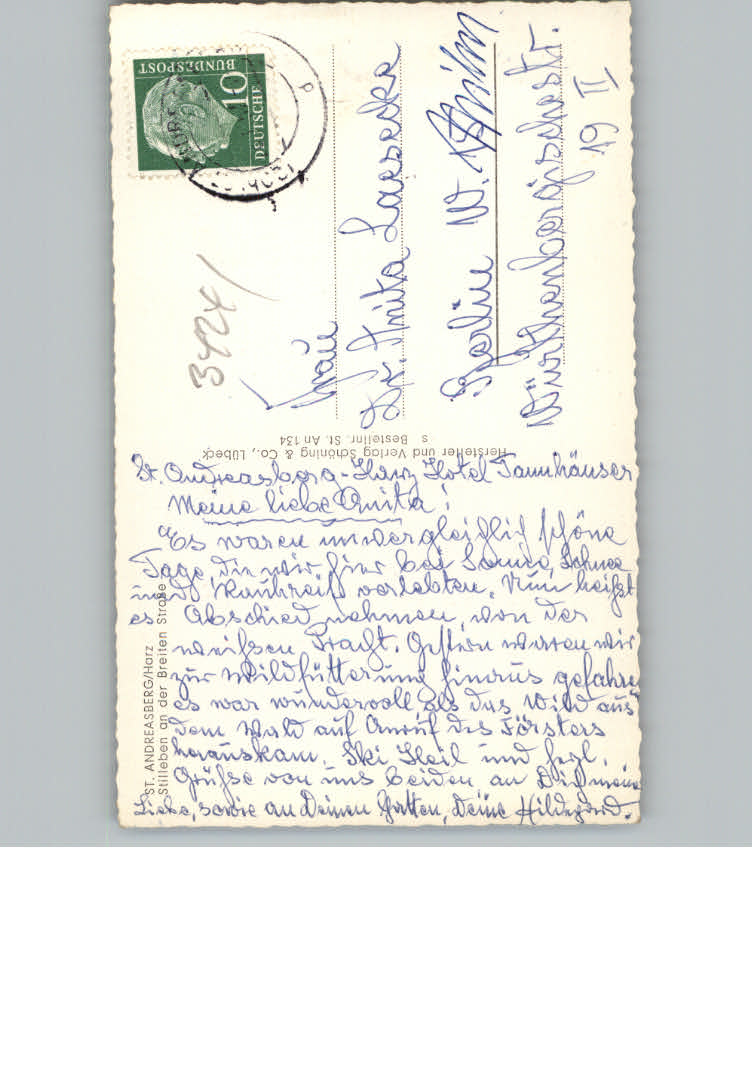 St. Andreasberg-Harz Hotel Tannhäuser
Meine liebe Anita!
Es waren unvergleichlich schöne
Tage, die wir hier bei Sonne, Schnee
und Rauhreif verlebten. Nun heißt
es Abschied nehmen, von der
weißen Pracht. Gestern waren wir
zur Wildfütterung hinaus gefahren
es war wundervoll als das Wild aus
dem Wald auf Anruf des Försters
herauskam. Ski Heil und hrzl.
Grüße von uns beiden an Dich meine
Liebe, sowie an Deinen Gatten, Deine Hildegard.
Frau
Dr. Anita Laesecke
Berlin W. 15
Württembergischestr.
19 II
ST. ANDREASBERG/Harz
Stilleben an der Breiten Straße
Hersteller und Verlag Schöning & Co., Lübeck
s Bestellnr. St. An 134
DEUTSCHE
BUNDESPOST
10